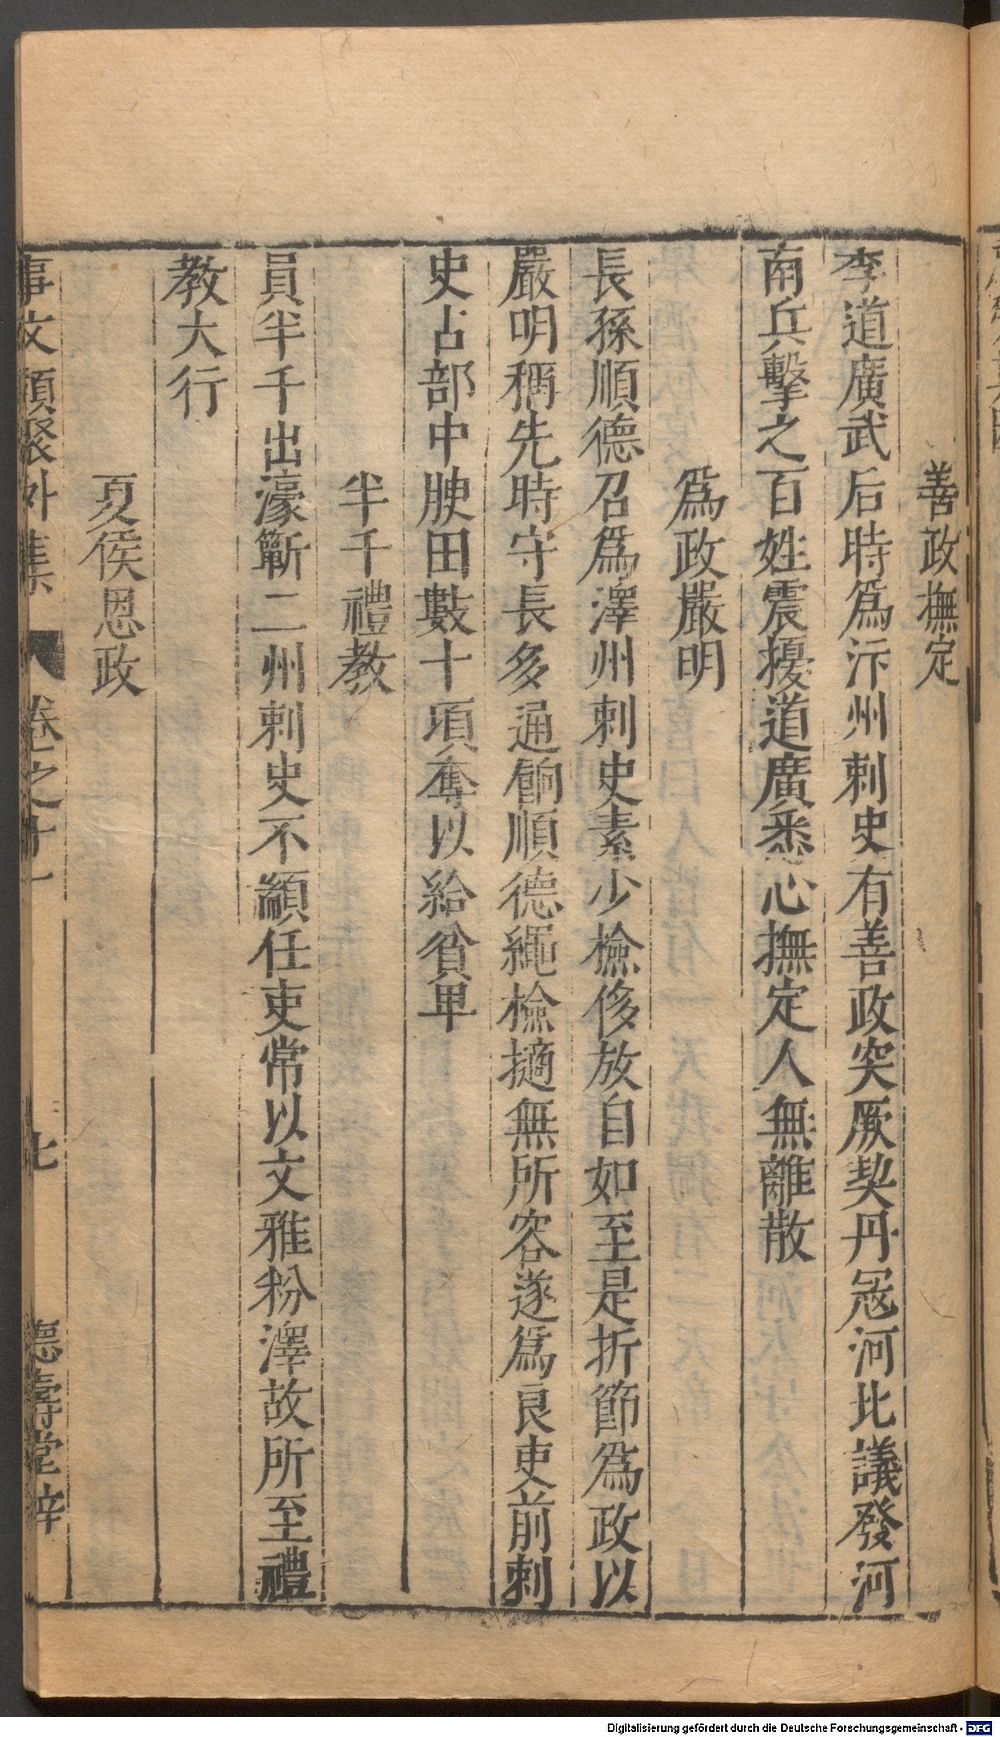 善政撫定
李道廣武后時爲汴州刺史有善政突厥契丹冦河北議發河
南兵擊之百姓震擾道廣悉心撫定人無離散
爲政嚴明
長孫順德召爲澤州刺史素少檢侈放自如至是折節爲政以
嚴明稱先時守長多通餉順德繩檢擿無所容遂爲良吏前刺
史占部中腴田數十項奪以給貧単
半千禮教
員半千出濠蘄二州刺史不顓任吏常以文雅粉澤故所至禮
教大行
夏侯恩政
事文類聚外集 卷之十一 七 德壽堂梓
Digitalisierung gefördert durch die Deutsche Forschungsgemeinschaft - DFG